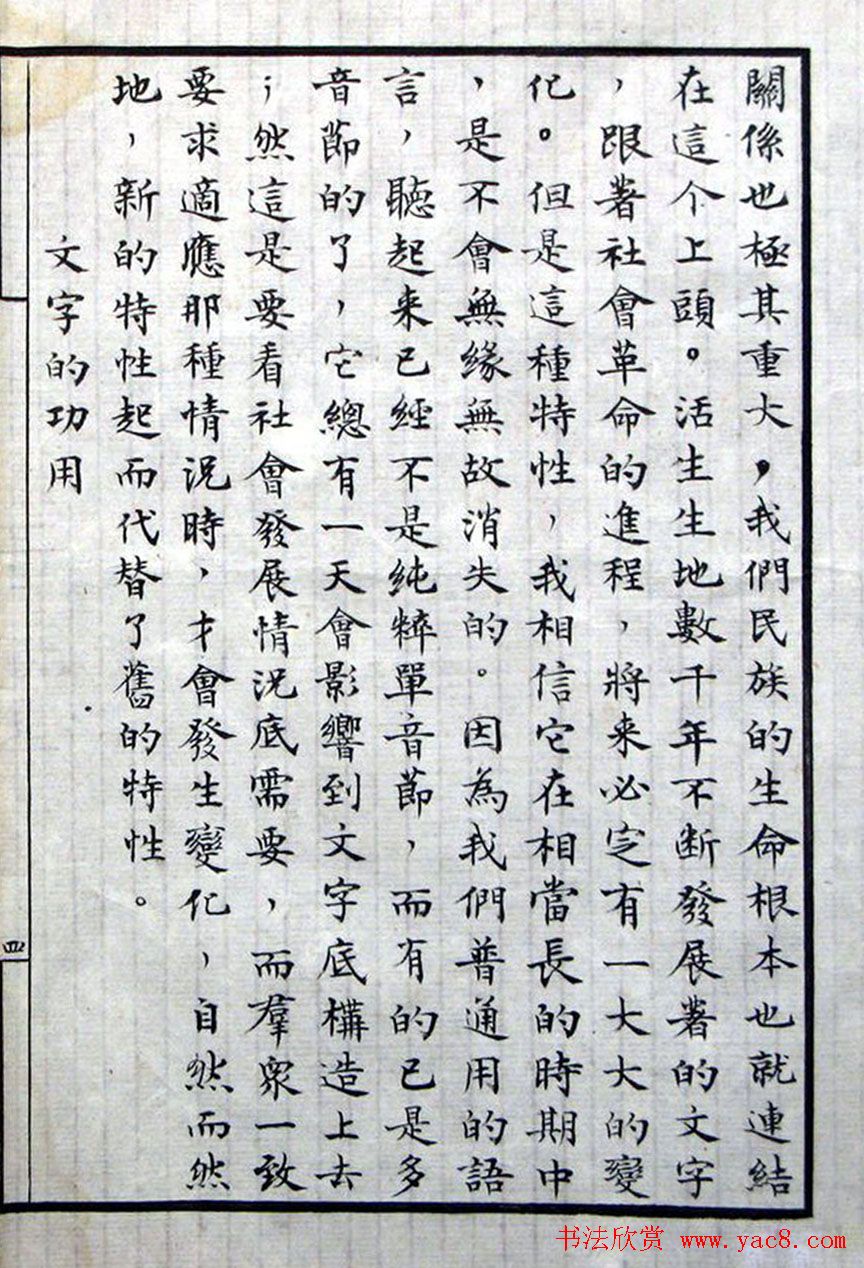 關係也極其重大，我們民族的生命根本也就連結
在這个上頭。活生生地數千年不断發展著的文字
，跟著社會革命的進程，將来必定有一大大的變
化。但是這種特性，我相信它在相當長的時期中
，是不會無緣無故消失的。因為我們普通用的語
言，聽起来已經不是純粹單音節，而有的已是多
音節的了，它總有一天會影響到文字底構造上去
；然這是要看社會發展情况底需要，而羣眾一致
要求適應那種情况時，才會發生變化，自然而然
地，新的特性起而代替了舊的特性。
文字的功用
四
书法欣赏 www.yac8.com